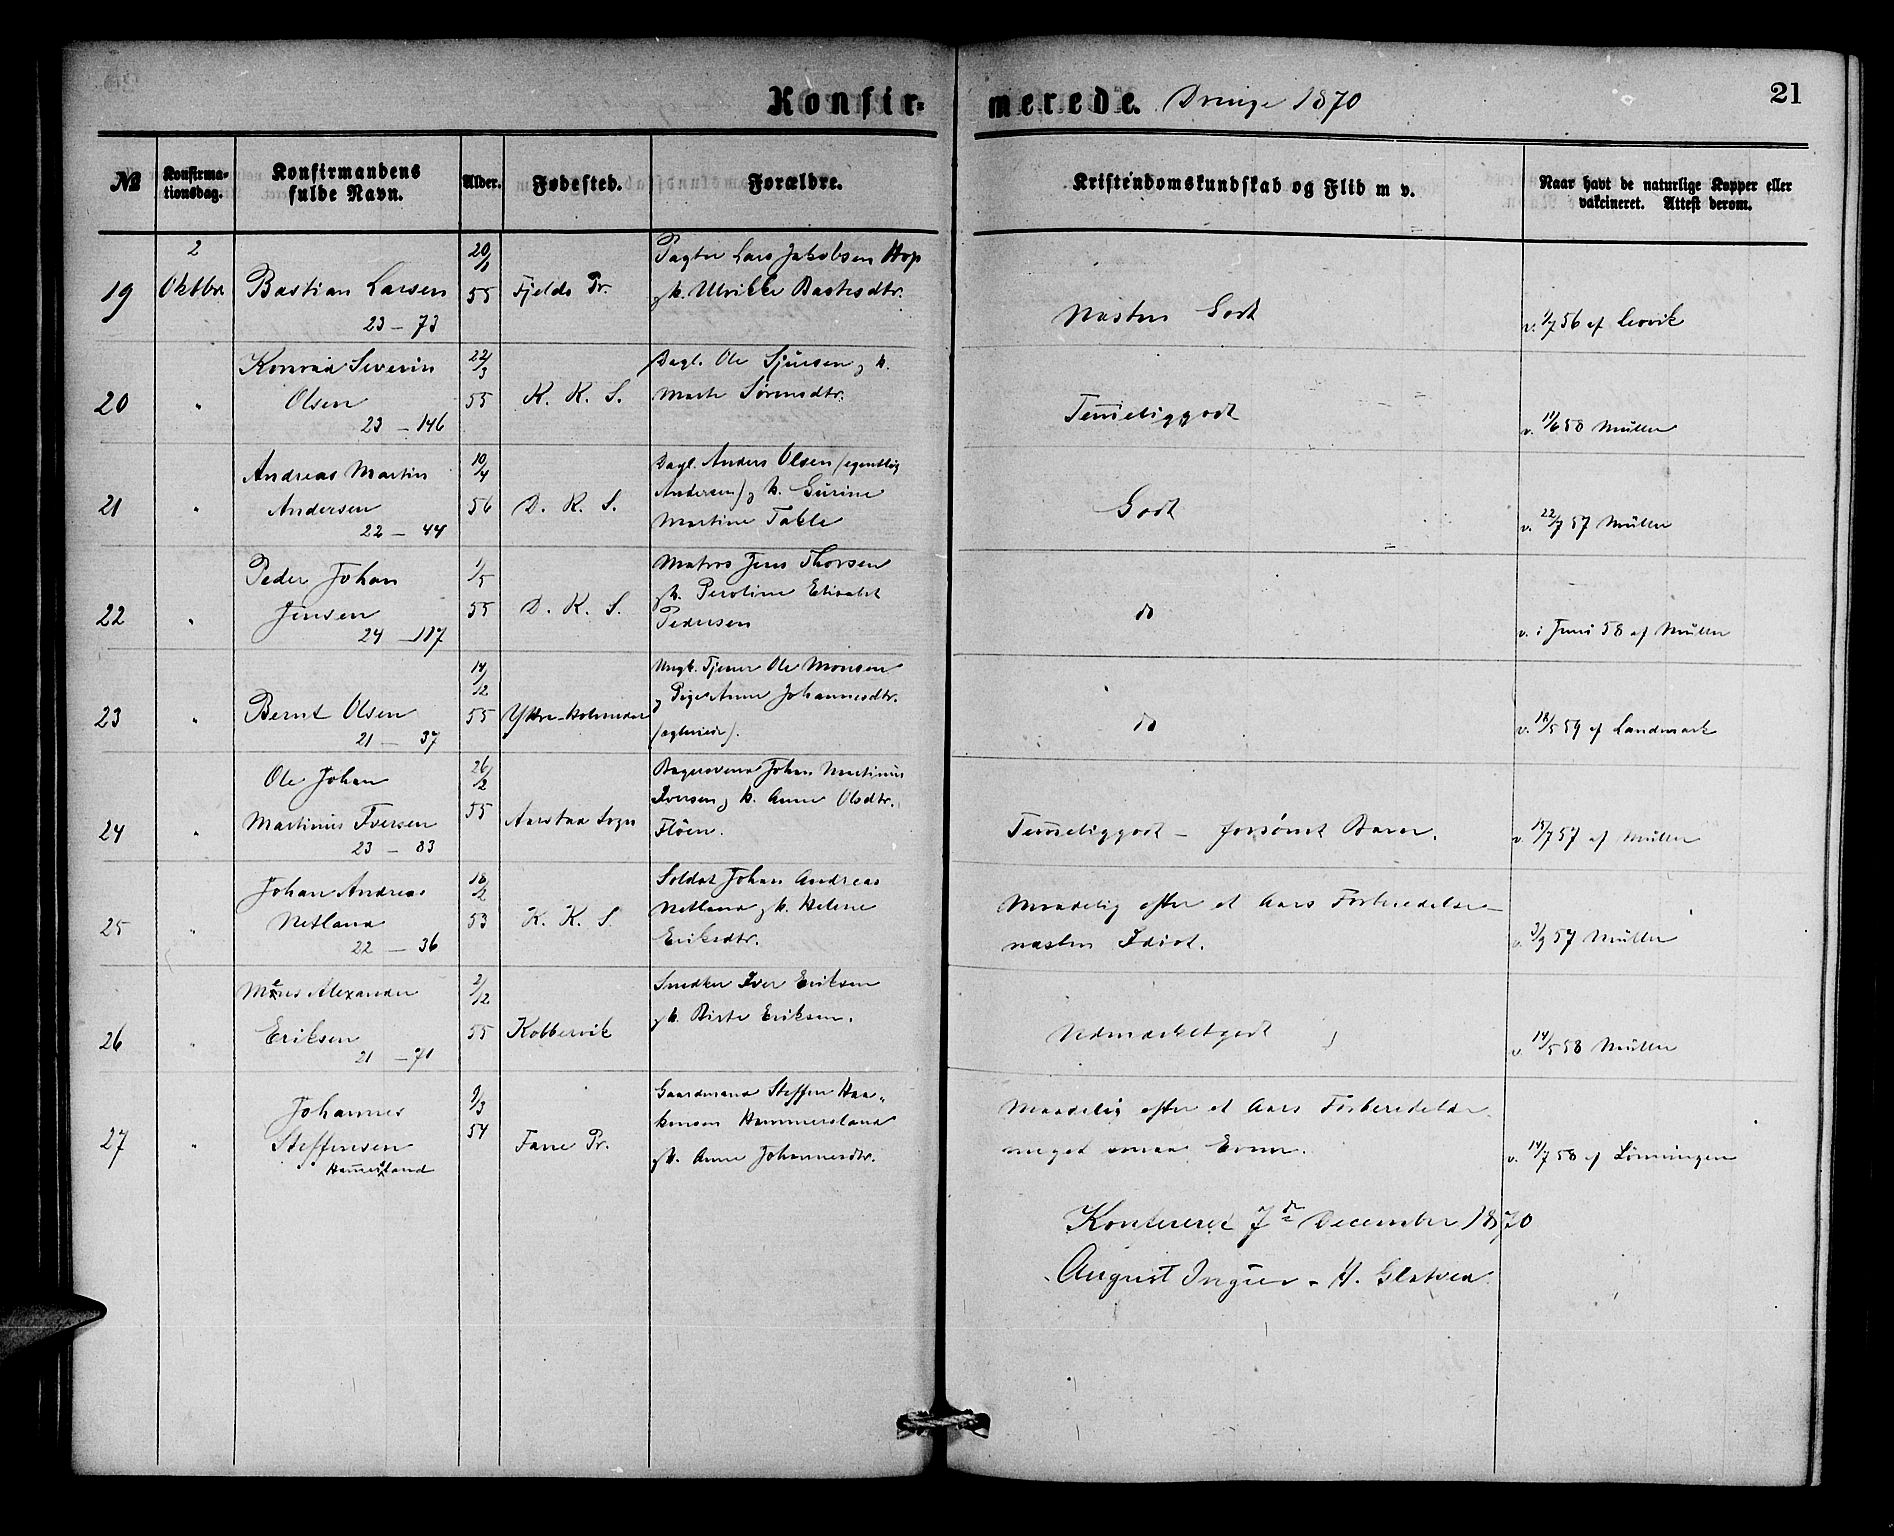 Konfir-merede. Drenge 1870
21
№ Konfirma-tionsdag. Konfirmandens fulde Navn. Alder. Fødested. Forældre. Kristendomskundskab og Flid m v. Naar havt de naturlige Kopper eller vakcineret. Attest derom.
2 20/1 Pagter Lars Jakobsen Hop
19 Oktbr. Bastian Larsen 55 Fjelds Pr. og h. Ulrikke Bastesdtr. Næsten Godt v. 1/7 56 af
23 – 73
Konrad Severin 22/3 Dagl. Ole Sjursen og h.
20 " Olsen 55 K. K. S. Marte Sørensdtr. Temeliggodt v. 11/6 58 Müller
23 – 146
Andreas Martin 10/4 Dagl. Anders Olsen (egentlig
21 " Andersen 56 D. K. S. Andersen) og h. Gurine Godt v. 22/7 57 Müller
22 – 44 Martine Takle
Peder Johan 1/5 Matros Jens Thorsen
22 " Jensen 55 D. K. S. og h. Peroline Elisabet do v. i Juni 58 af Müller
24 – 187 Pedersen
14/12 Ungk. Tjener Ole Monsen
23 " Bernt Olsen 55 Ytre-Holmedal og Pige Anne Johannesdtr. do v. 18/5 59 af Landmark
21 – 37 (ægteviede).
Ole Johan 26/2 Bagersvend Johan Martinus
24 " Martinus Iversen 55 Aarstad Sogn Iversen og h. Anne Olsdtr. Temeliggodt – forsømt Barn. v. 15/7 57 af Müller
23 – 83 Fløen.
Johan Andreas 18/2 Soldat Johan Andreas
25 " Netland 53 K. K. S. Netland og h. Helene Maadelig efter et Aars Forberedelse –
22 – 36 Eriksdtr. næsten Idiot. v. 3/9 57 Müller
Mons Alexander 2/12 Snedker Iver Eriksen
26 " Eriksen 55 Kobbervik og h. Birte Eriksen. Udmærketgodt v. 14/5 58 Müller
21 – 71
Johannes 9/3 Gaardmand Steffen Haa-
27 " Steffensen 54 Fane Pr. konsen Hammersland Maadelig efter et Aars Forberedelse
Hamersland og h. Anne Johannesdtr. meget smaa Evner. v. 14/7 58 af Lønningen
Konfereret 7de December 1870
August – H.